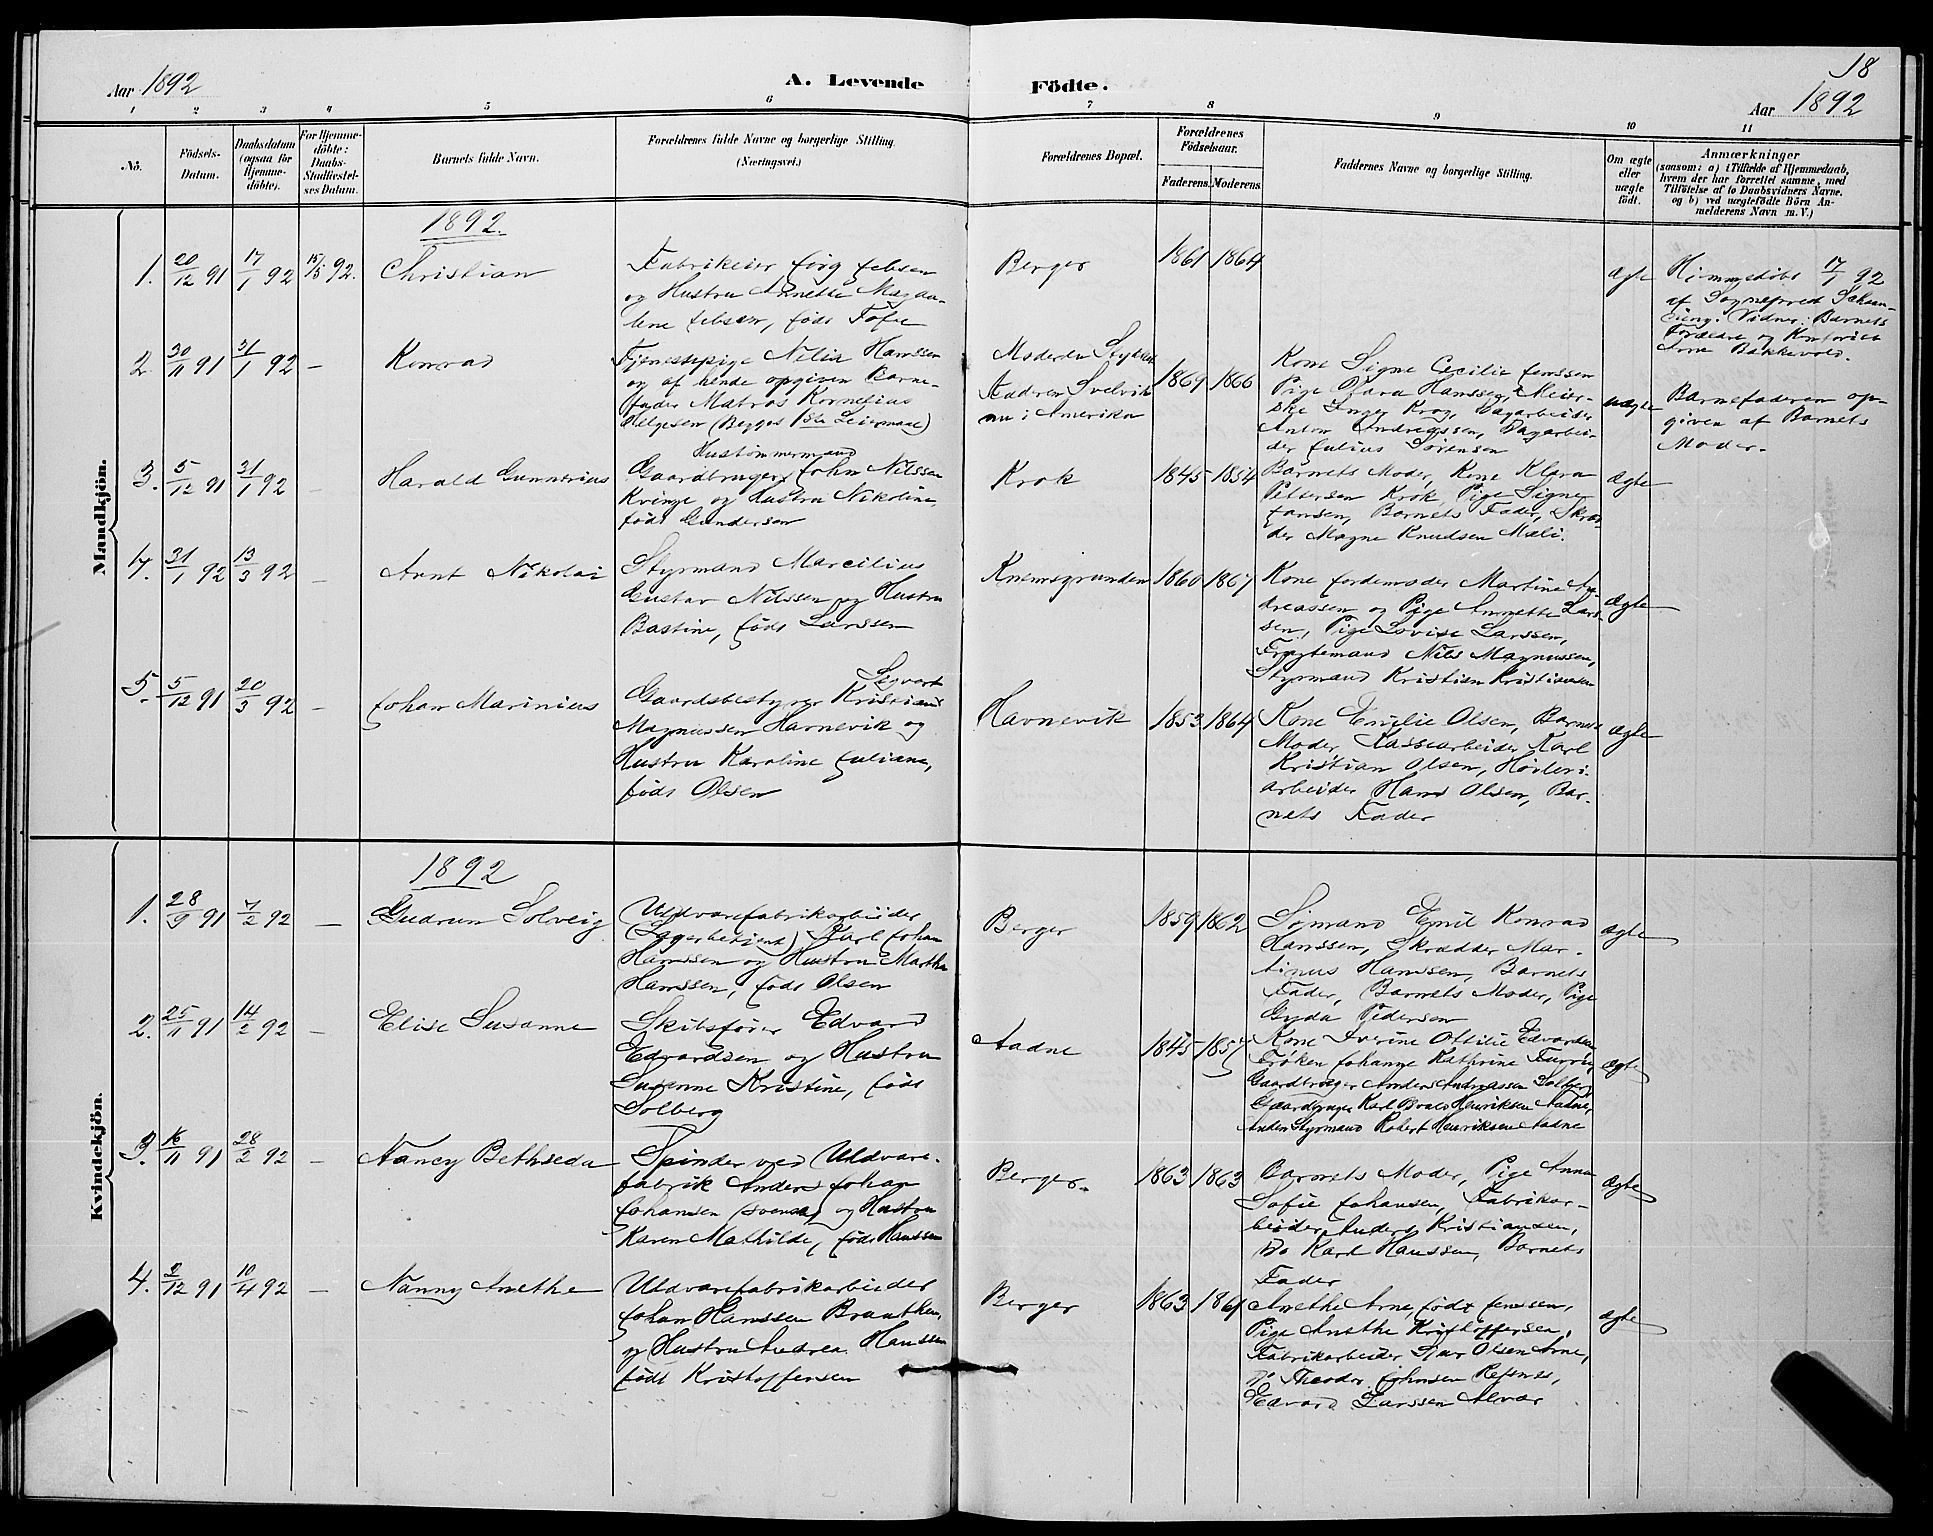 Aar 1892
A. Levende Födte.
18
Aar 1892
1 2 3 4 5 6 7 8 9 10 11
No.
Födsels-
Datum.
Daabsdatum
(ogsaa for
Hjemme-
döbte).
For Hjemme-
döbte:
Daabs-
Stadfæstel-
ses Datum.
Barnets fulde Navn.
Forældrenes fulde Navne og borgerlige Stilling
(Næringsvei.)
Forældrenes Bopæl.
Forældrenes
Födselsaar.
Faderens. Moderens.
Faddernes Navne og borgerlige Stilling.
Om ægte
eller
uægte
födt.
Anmærkninger
(saasom: a) i Tilfælde af Hjemmedaab,
hvem der har forrettet samme, med
Tilföielse af to Daabsvidners Navne.
og b) ved uægtefödte Börn An-
melderens Navn m. V.)
Mandkjön.
1892.
1. 20/12 91 17/1 92 15/5 92.
Christian
Fabrikeier Jörg Jebsen
og Hustru Annette Magda-
lene Jebsen, født Tofte
Berger
1861 1864
ægte
Hjemmedøbt 17/1 92
af Sognepræst
Vidner: Barnets
Forældre og
Arne Bakkevold.
2 30/11 91 31/1 92 –
Konrad
Tjenestepige Nilia Hanssen
og af hende opgiven Barne-
fader Matros Kornelius
Helgesen (Begges 1ste Leiermaal)
Moderen
Faderen Svelvik
nu i Amerika
1869 1866
Kone Signe Cecilie Jenssen
Pige Klara Hanssen, Meier-
ske Inger Krog, Dagarbeider
Anton Andreassen, Dagarbei-
der Julius Sørensen
uægte
Barnefaderen op-
given af Barnets
Moder.
3. 5/12 91 31/1 92 –
Harald Gunnerius
Hustømmermand
Gaardbruger John Nilssen
Kringe og Hustru Nikoline,
født Gundersen
Krok
1845 1854
Barnets Moder, Kone Klara
Petersen Krok, Pige Signe
Jansen, Barnets Fader, Skræd-
der Magne Knudsen Mæli.
ægte
4. 31/1 92 13/3 92 –
Arnt Nikolai
Styrmand Marcilius
Gustav Nilssen og Hustru
Bastine, født Larssen
Knemsgrunden
1860 1867
Kone Jordemoder Martine An-
dreassen og Pige Annette Lars-
sen, Pige Lovise Larssen,
Fragtemand Nils Magnussen,
Styrmand Kristian Kristiansen
ægte
5. 5/12 91 20/3 92 –
Johan Marinius
Sigvart
Gaardsbestyrer Kristian
Magnussen Havnevik og
Hustru Karoline Juliane,
født Olsen
Havnevik
1853 1864
Kone Emilie Olsen, Barnets
Moder, Kassearbeider Karl
Kristian Olsen, Høvleri-
arbeider Hans Olsen, Bar-
nets Fader
ægte
Kvindekjön.
1892
1. 28/9 91 7/2 92 –
Gudrun Solveig
Uldvarefabrikarbeider
(Lagerbetjent) Karl Johan
Hanssen og Hustru Martha
Hanssen, født Olsen
Berger
1859 1862
Sømand Emil Konrad
Hanssen, Skrædder Mar-
tinus Hanssen, Barnets
Fader, Barnets Moder, Pige
Gyda Pedersen
ægte
2. 25/11 91 14/2 92 –
Elise Susanne
Skibsfører Edvard
Edvardsen og Hustru
Susanne Kristine, født
Solberg
Aadne
1845 1857
Kone Iverine Ottilie Edvardsen
Frøken Johanne Kathrine
Gaardbruger Anders Andreassen Solberg
Gaardbruger Karl Henriksen Aadne,
Anden Styrmand Robert Henriksen Aadne
ægte
3. 16/11 91 28/2 92 –
Nancy Bethseda
Spinder ved Uldvare-
fabrik Anders Johan
Johansen (svensk) og Hustru
Karen Mathilde, født Hanssen
Berger.
1863 1863
Barnets Moder, Pige Anna
Sofie Johansen, Fabrikar-
beider Anders Kristiansen,
Do Karl Hanssen, Barnets
Fader
ægte
4. 2/12 91 10/4 92 –
Nanny Anethe
Uldvarefabrikarbeider
Johan Hanssen Brauthen,
og Hustru Andrea Hanssen
født Kristoffersen
Berger
1863 1861
Anethe Arne, født Jenssen,
Pige Anethe Kristoffersen,
Fabrikarbeider Olsen Arne,
Do Theodor Johnsen Refsnes,
Edvard Larssen
ægte